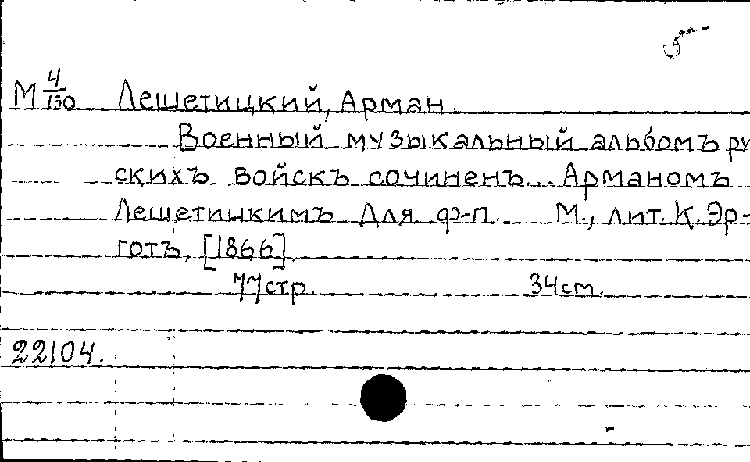 М 4/130 Лешетицкий, Арман
Военный музыкальный альбомъ ру
скихъ войскъ сочиненъ... Арманомъ
Лешетицкимъ Для ф-п. М., лит. К. Эр-
готъ, [1866]
77 стр. 34 cm.
22104.